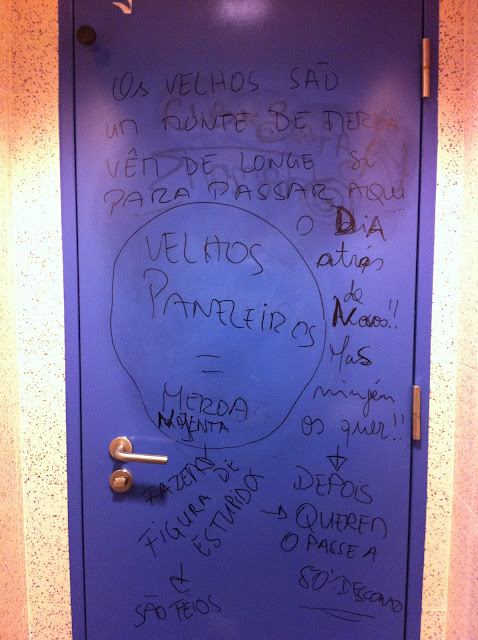 Os VELHOS SÃO
um MONTE DE MERDA
VÊM DE LONGE SÓ
PARA PASSAR AQUI
O DIA
atrás
de
Novos!!
Mas
ningém
os quer!!
VELHOS
PANELEIROS
=
MERDA
NOJENTA
FAZEM
FIGURA DE
ESTUPIDOS
SÃO FEIOS
DEPOIS
QUEREM
O PASSE A
50% DESCONTO